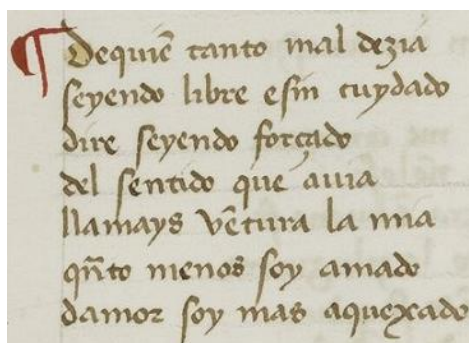 ¶ Dequiē tanto mal dezia
seyendo libre esin cuydado
dire seyendo forçado
del sentido que auia
llamays vētura la mia
qñto menos soy amado
damor soy mas aquexado